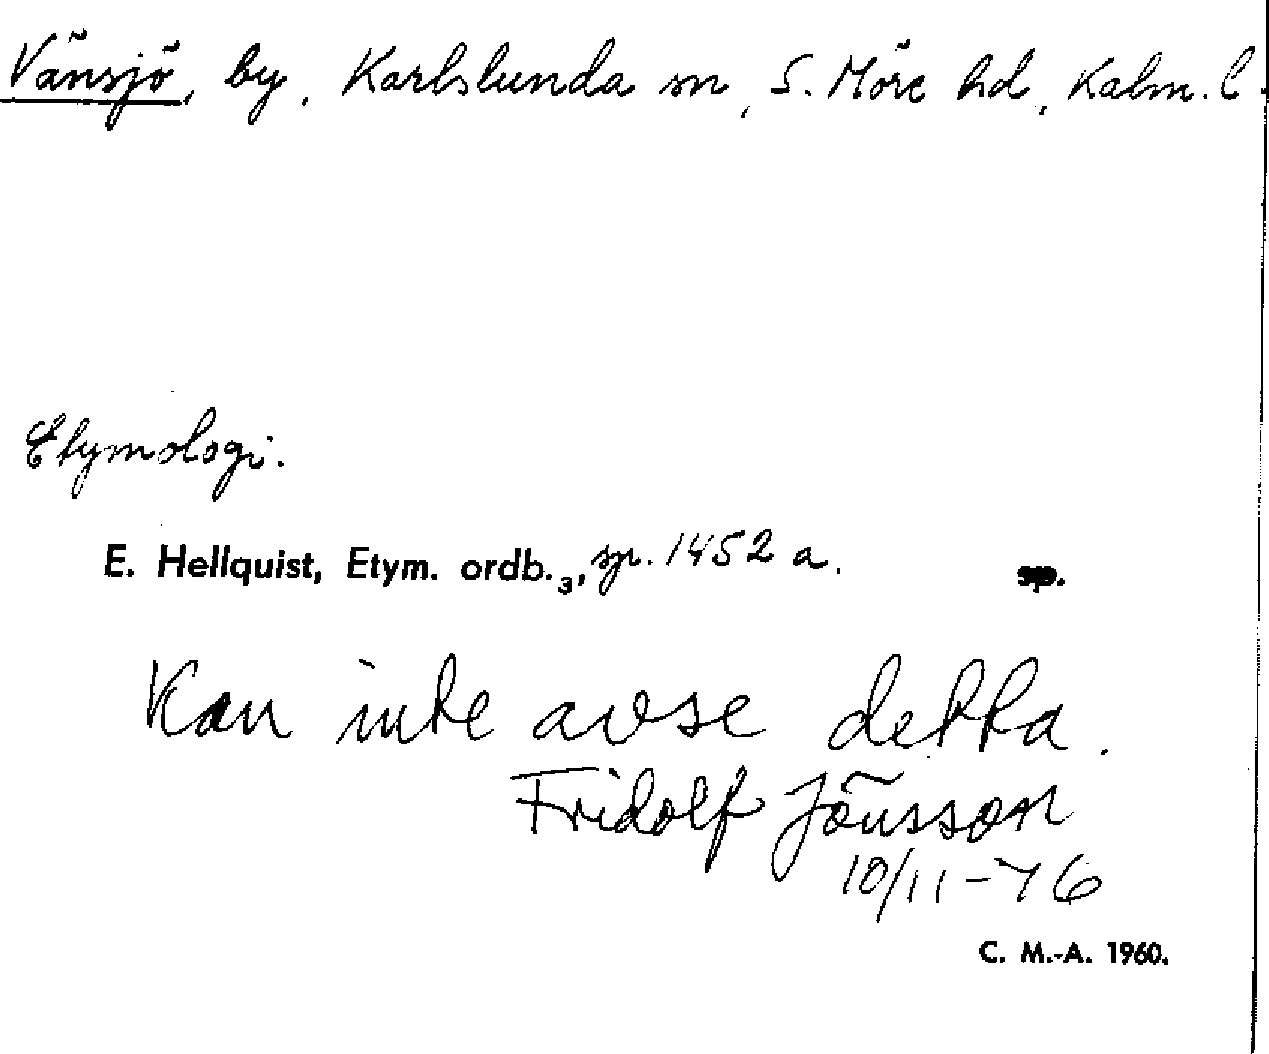 Vänsjö, by, Karlslunda sn, S. Möre hd, Kalm. l.
Etymologi.
E. Hellquist, Etym. ordb.₃, sp. 1452 a. sp.
Kan inte avse detta.
Fridolf Jönsson
10/11-76
C. M.-A. 1960.